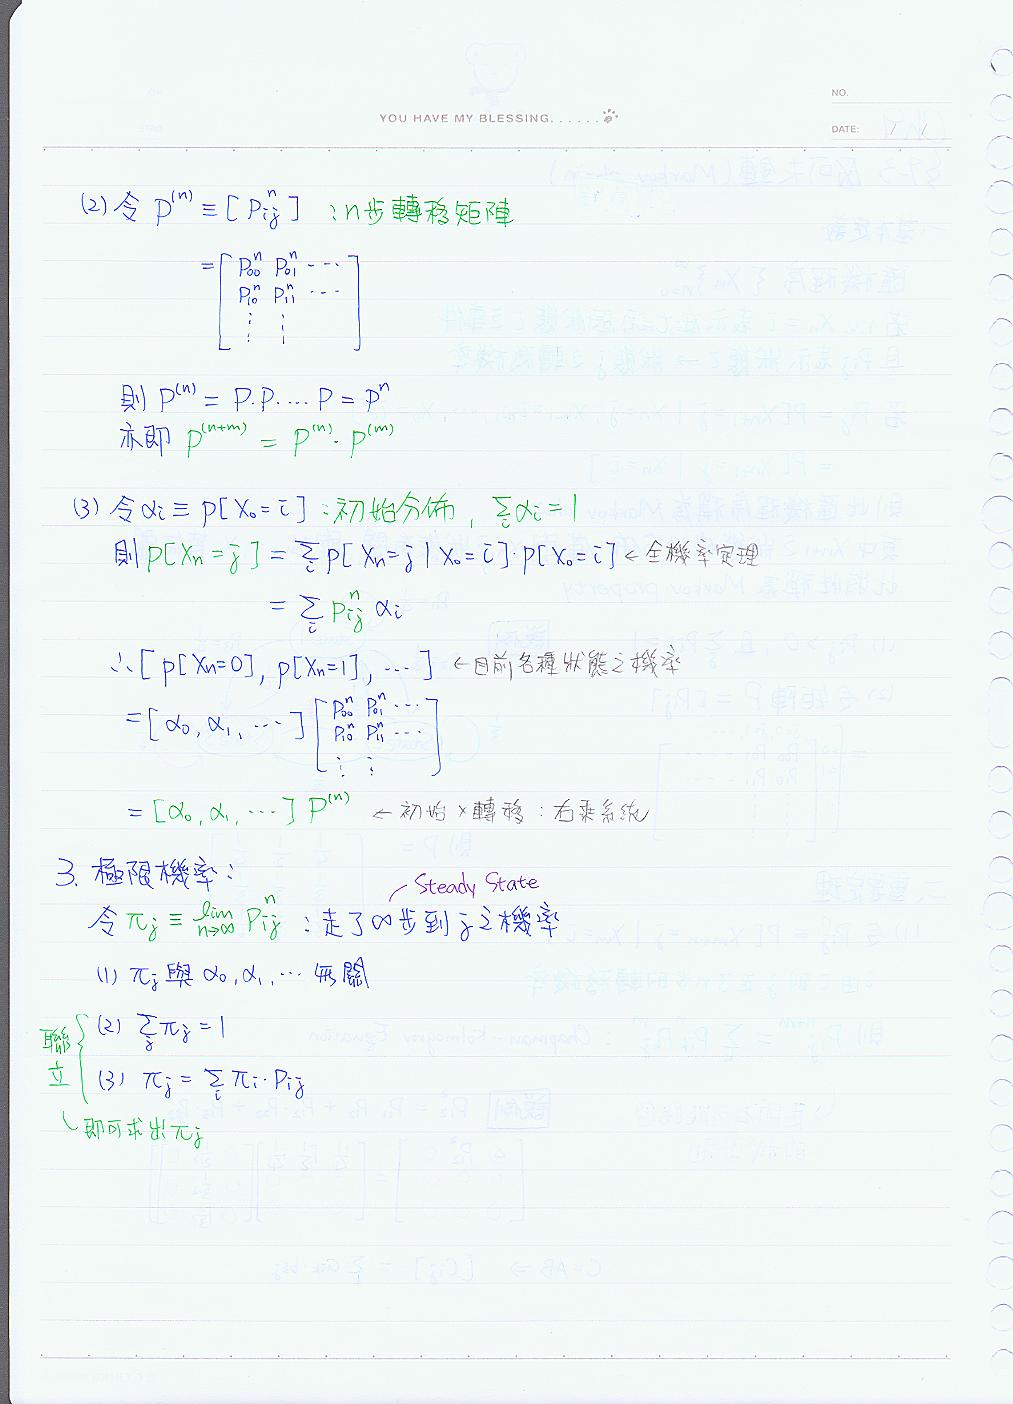 YOU HAVE MY BLESSING......
NO.
DATE:
(2) 令 P^(n) ≡ [P_ij^n] : n步轉移矩陣
= [ P_00^n P_01^n ⋯
P_10^n P_11^n ⋯
⋮ ⋮ ]
則 P^(n) = P·P·⋯·P = P^n
亦即 P^(n+m) = P^(n)·P^(m)
(3) 令 α_i ≡ p[X_0=i] : 初始分佈, Σ_i α_i = 1
則 p[X_n=j] = Σ_i p[X_n=j | X_0=i]·p[X_0=i] ← 全機率定理
= Σ_i P_ij^n α_i
∴ [p[X_n=0], p[X_n=1], ⋯] ← 目前各種狀態之機率
= [α_0, α_1, ⋯] [ P_00^n P_01^n ⋯
P_10^n P_11^n ⋯
⋮ ⋮ ]
= [α_0, α_1, ⋯] P^(n) ← 初始×轉移 : 右乘系統
3. 極限機率 :
Steady State
令 π_j ≡ lim_{n→∞} P_ij^n : 走了∞步到j之機率
(1) π_j 與 α_0, α_1, ⋯ 無關
聯立 { (2) Σ_j π_j = 1
(3) π_j = Σ_i π_i·P_ij
即可求出π_j